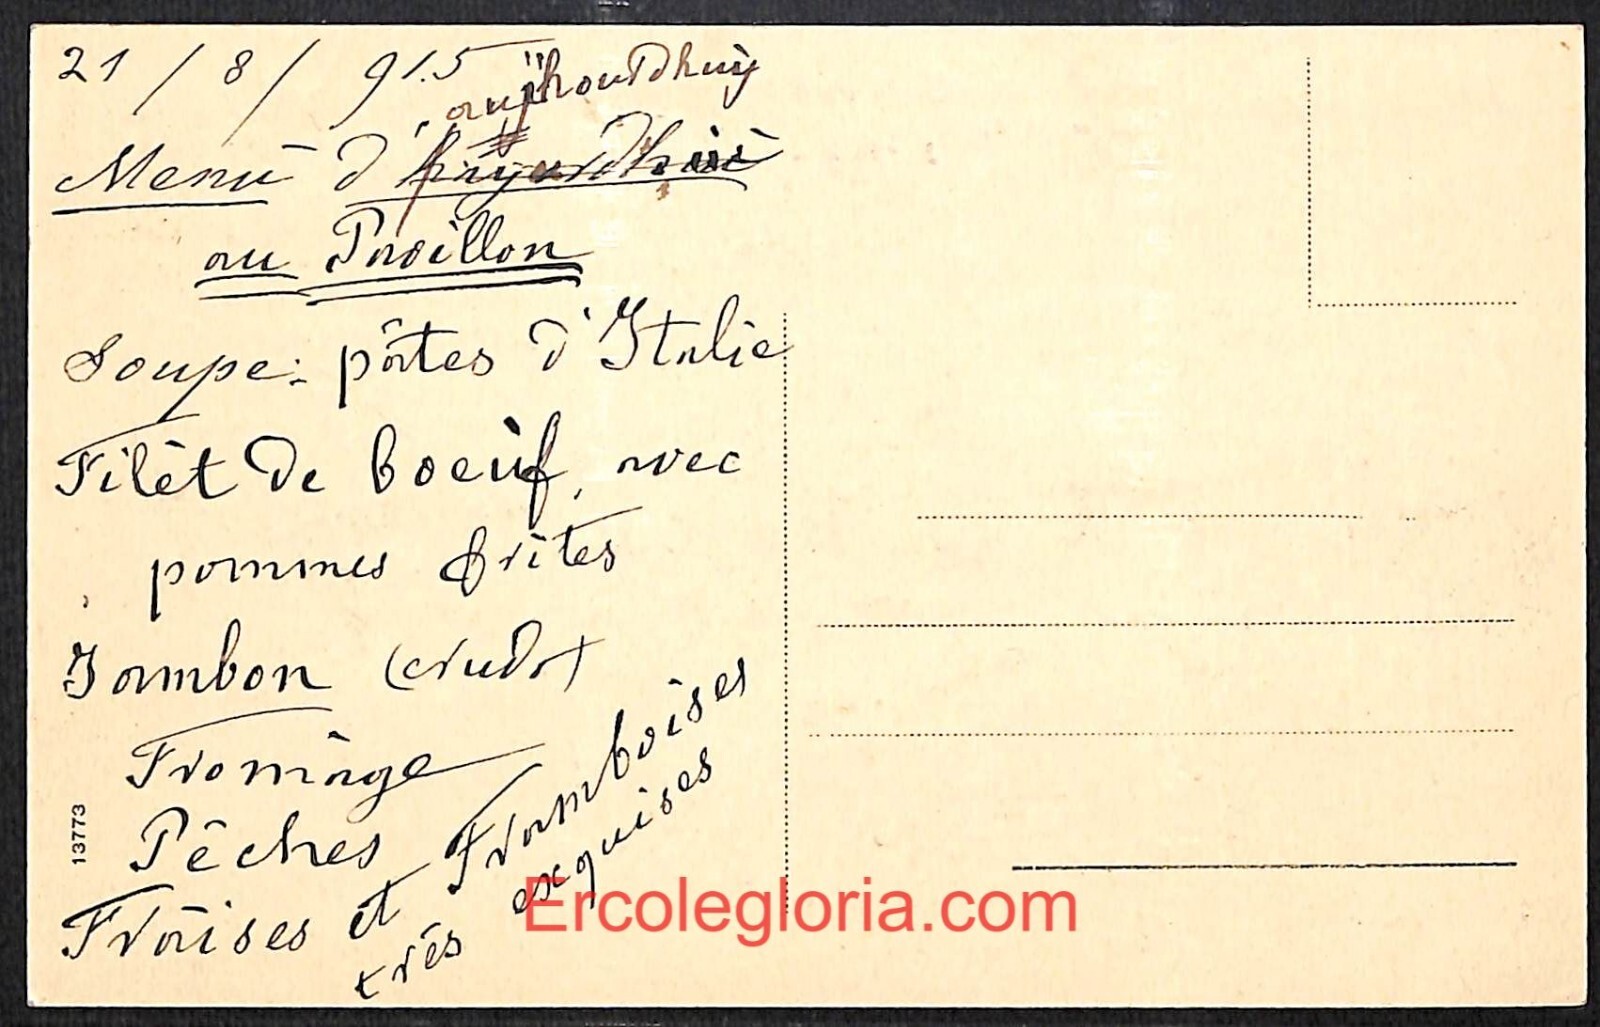 21 / 8 / 915
Menu d'
au Pavillon
Soupe: pâtes d'Italie
Filèt de boeuf, avec
pommes frites
Jambon (crudo)
Fromage
Pêches
Fraises et Framboises
très exquises
13773
Ercolegloria.com